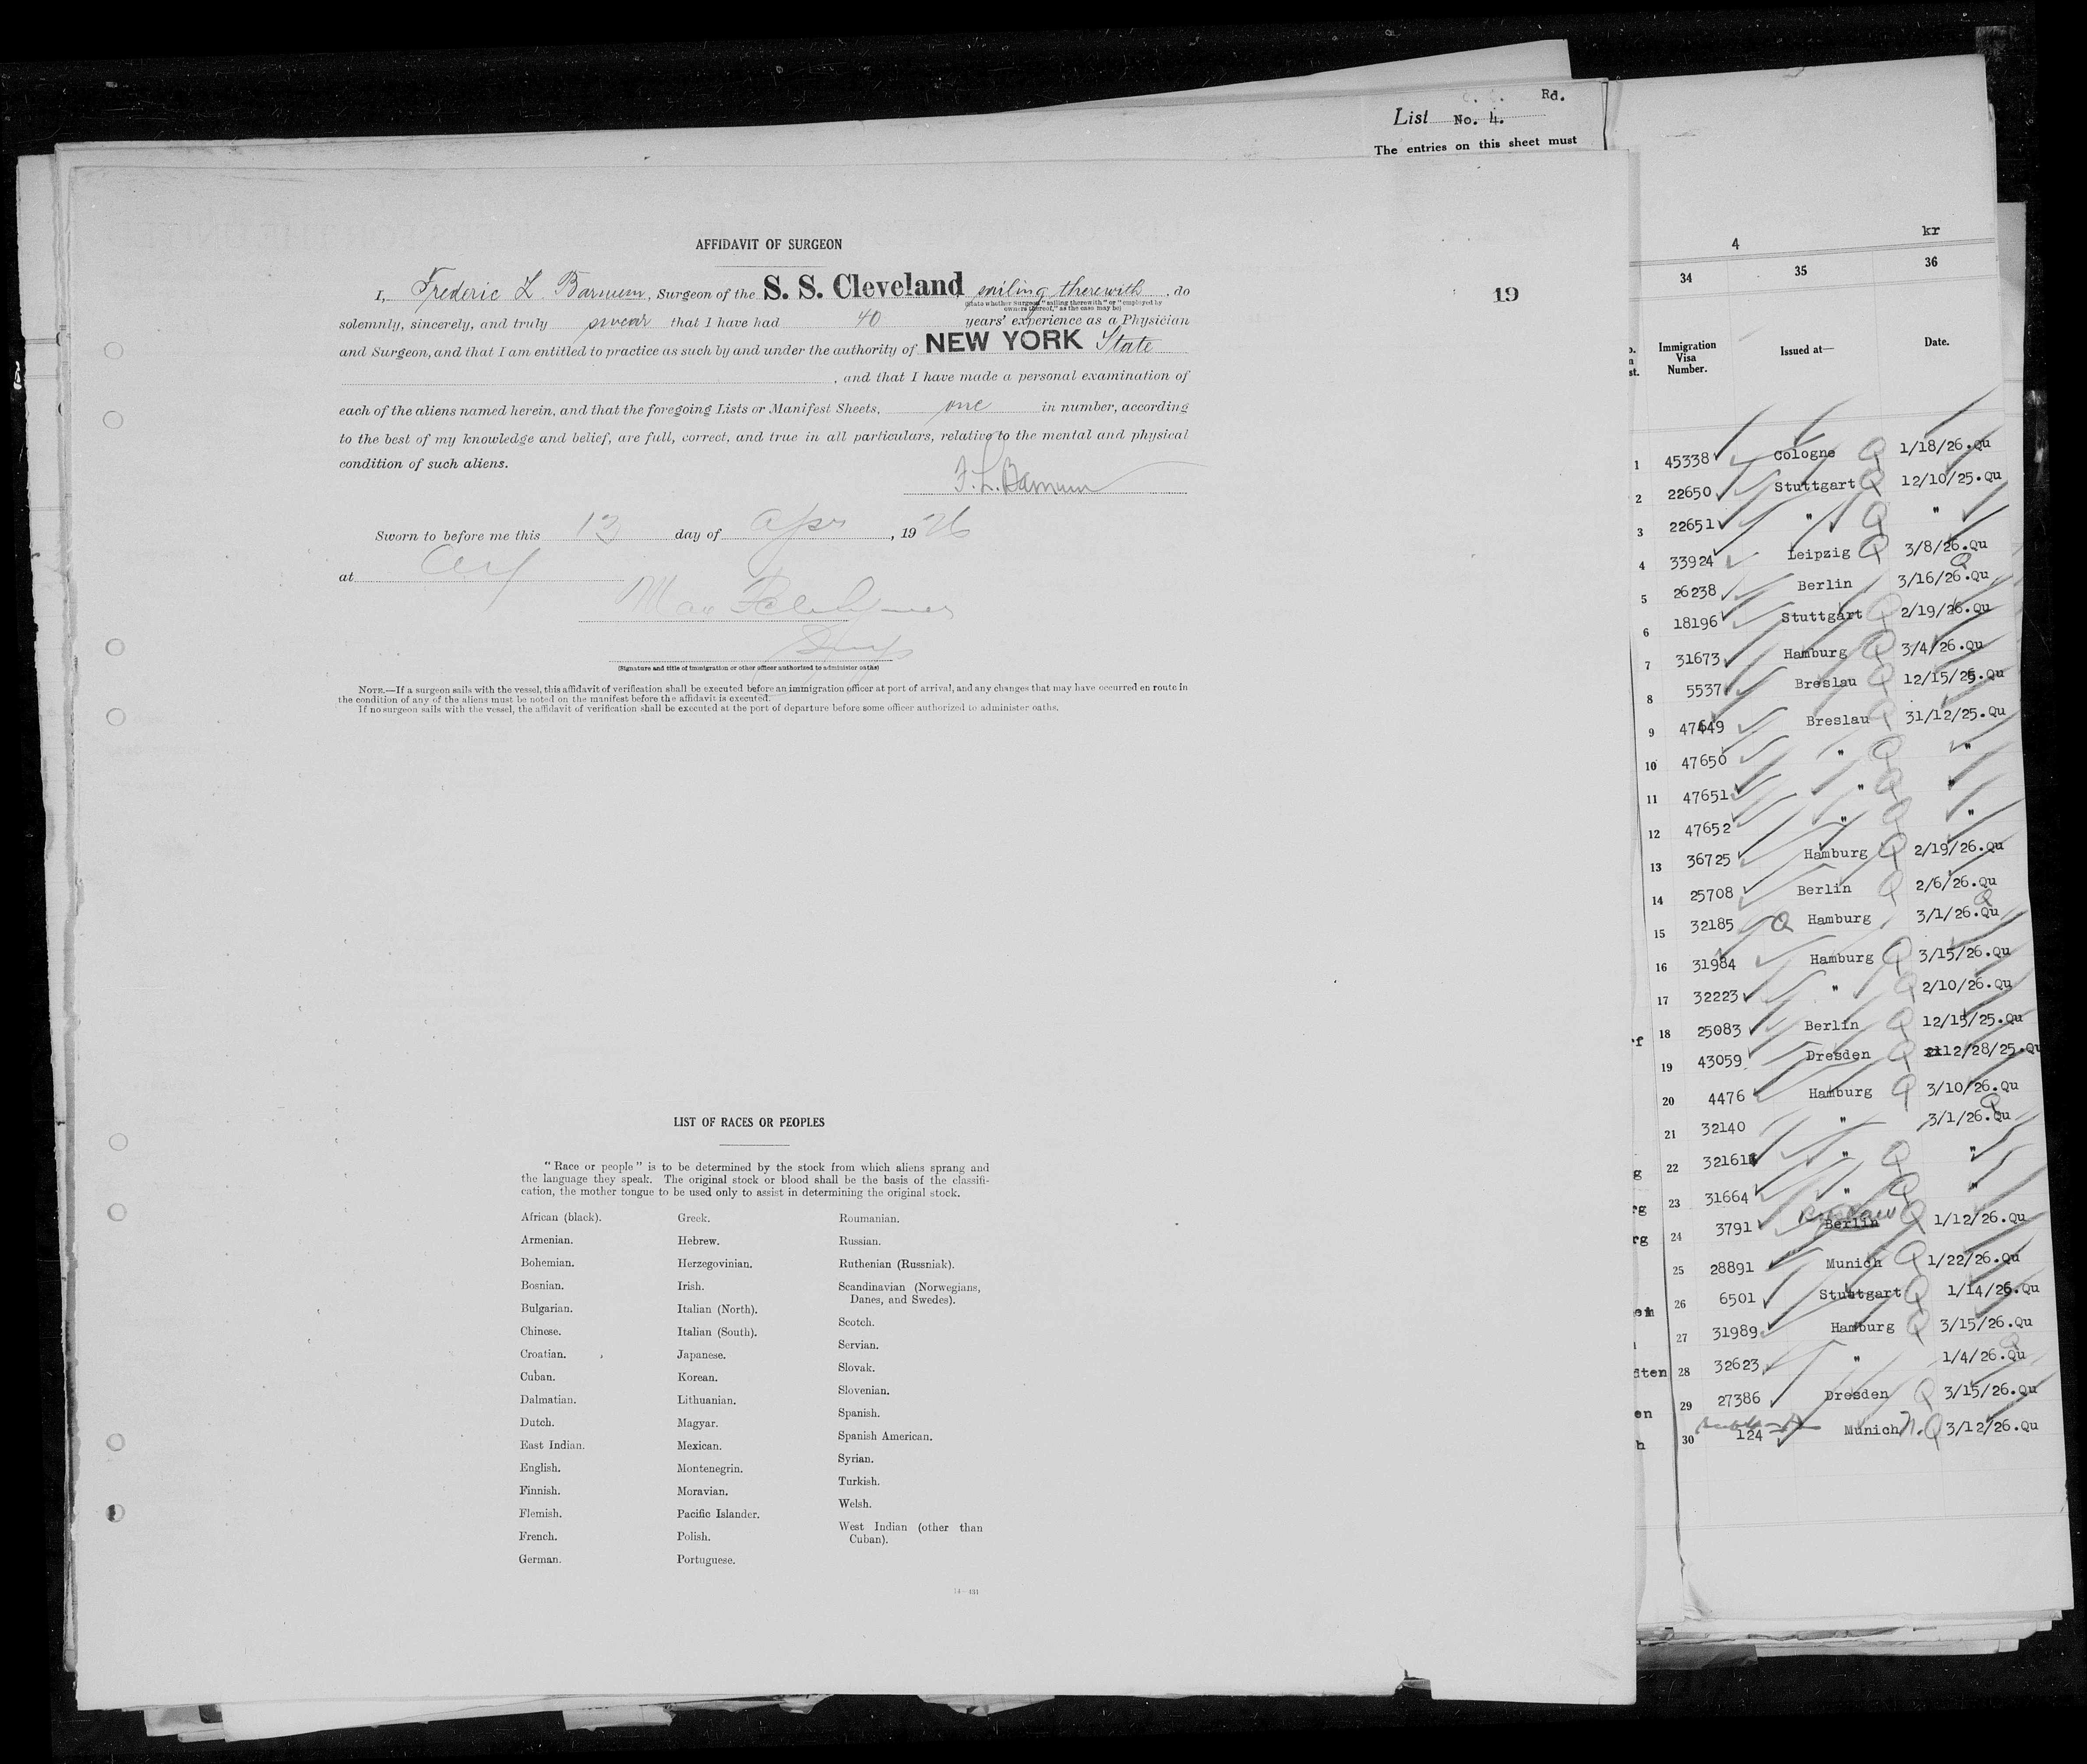 Rd.
List No. 4.
The entries on this sheet must
19
AFFIDAVIT OF SURGEON
I, Frederic L. Barnum, Surgeon of the S. S. Cleveland sailing therewith, do
(State whether Surgeon "sailing therewith" or "employed by
owners thereof," as the case may be)
solemnly, sincerely, and truly swear that I have had 40 years' experience as a Physician
and Surgeon, and that I am entitled to practice as such by and under the authority of NEW YORK State
, and that I have made a personal examination of
each of the aliens named herein, and that the foregoing Lists or Manifest Sheets, one in number, according
to the best of my knowledge and belief, are full, correct, and true in all particulars, relative to the mental and physical
condition of such aliens.
F. L. Barnum
Sworn to before me this 13 day of Apr, 1926
at
Max
(Signature and title of immigration or other officer authorized to administer oaths)
NOTE.—If a surgeon sails with the vessel, this affidavit of verification shall be executed before an immigration officer at port of arrival, and any changes that may have occurred en route in
the condition of any of the aliens must be noted on the manifest before the affidavit is executed.
If no surgeon sails with the vessel, the affidavit of verification shall be executed at the port of departure before some officer authorized to administer oaths.
LIST OF RACES OR PEOPLES
"Race or people" is to be determined by the stock from which aliens sprang and
the language they speak. The original stock or blood shall be the basis of the classifi-
cation, the mother tongue to be used only to assist in determining the original stock.
African (black).
Armenian.
Bohemian.
Bosnian.
Bulgarian.
Chinese.
Croatian.
Cuban.
Dalmatian.
Dutch.
East Indian.
English.
Finnish.
Flemish.
French.
German.
Greek.
Hebrew.
Herzegovinian.
Irish.
Italian (North).
Italian (South).
Japanese.
Korean.
Lithuanian.
Magyar.
Mexican.
Montenegrin.
Moravian.
Pacific Islander.
Polish.
Portuguese.
Roumanian.
Russian.
Ruthenian (Russniak).
Scandinavian (Norwegians,
Danes, and Swedes).
Scotch.
Servian.
Slovak.
Slovenian.
Spanish.
Spanish American.
Syrian.
Turkish.
Welsh.
West Indian (other than
Cuban).
14—431
4 kr
34 35 36
Immigration Visa Number. Issued at— Date.
1 45338 Cologne Q 1/18/26.Qu
2 22650 Stuttgart Q 12/10/25.Qu
3 22651 " Q "
4 33924 Leipzig Q 3/8/26.Qu
5 26238 Berlin Q 3/16/26.Qu
6 18196 Stuttgart Q 2/19/26.Qu
7 31673 Hamburg Q 3/4/26.Qu
8 5537 Breslau Q 12/15/25.Qu
9 47649 Breslau Q 31/12/25.Qu
10 47650 " Q "
11 47651 " Q "
12 47652 " Q "
13 36725 Hamburg Q 2/19/26.Qu
14 25708 Berlin Q 2/6/26.Qu
15 32185 Q Hamburg Q 3/1/26.Qu
16 31984 Hamburg Q 3/15/26.Qu
17 32223 " Q 2/10/26.Qu
18 25083 Berlin Q 12/15/25.Qu
19 43059 Dresden Q 12/28/25.Qu
20 4476 Hamburg Q 3/10/26.Qu
21 32140 " Q 3/1/26.Qu
22 32161 " Q "
23 31664 " Q "
24 3791 Breslau Berlin Q 1/12/26.Qu
25 28891 Munich Q 1/22/26.Qu
26 6501 Stuttgart Q 1/14/26.Qu
27 31989 Hamburg Q 3/15/26.Qu
28 32623 " Q 1/4/26.Qu
29 27386 Dresden Q 3/15/26.Qu
30 124 Munich N.Q 3/12/26.Qu